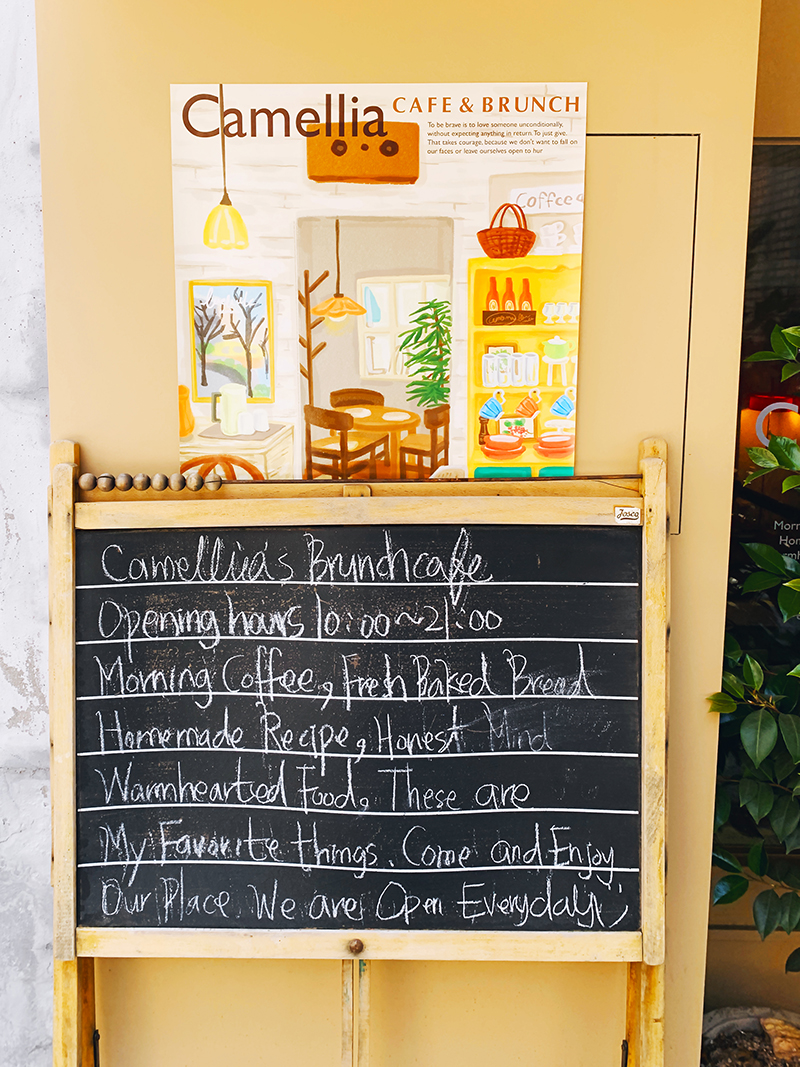 Camellia CAFE & BRUNCH
To be brave is to love someone unconditionally,
without expecting anything in return. To just give.
That takes courage, because we don't want to fall on
our faces or leave ourselves open to hur
Coffee
Josco
Camellia's Brunchcafe
Opening hours 10:00~21:00
Morning Coffee, Fresh Baked Bread
Homemade Recipe, Honest Mind
Warmhearted Food, These are
My Favorite things. Come and Enjoy
Our Place. We are Open Everyday :)
Morn
Hon